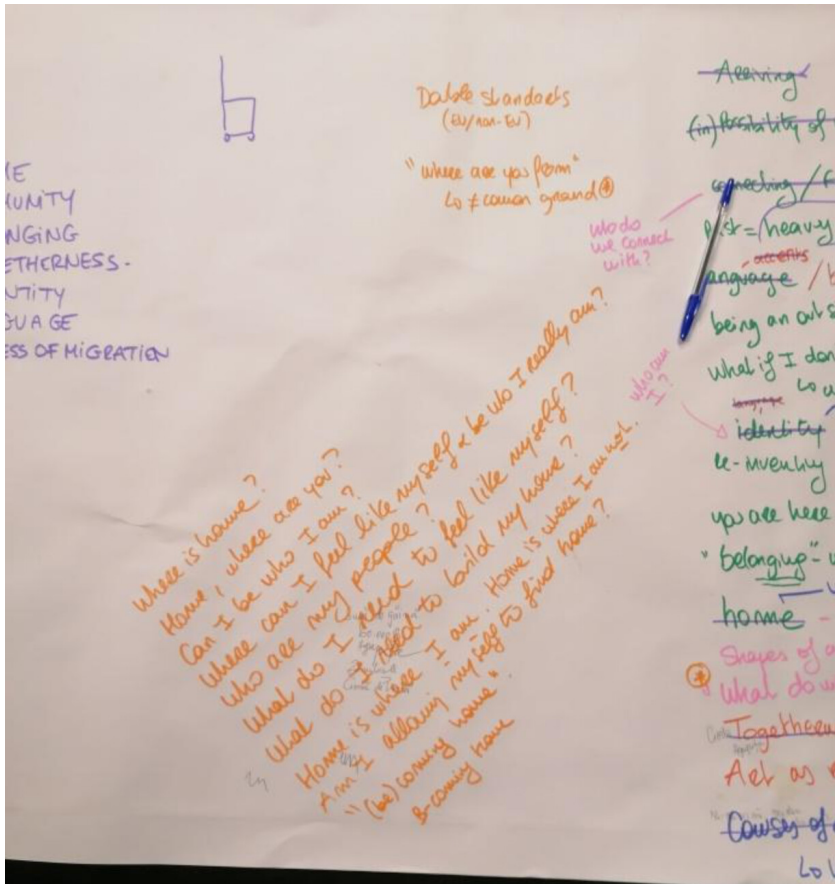 ME
MUNITY
NGING
ETHERNESS-
NTITY
GUAGE
ESS OF MIGRATION
Double standarts
(EU/non-EU)
"where are you from"
↳ ≠ common ground *
who do
we connect
with?
who am
I?
Where is home?
Home, where are you?
Can I be who I am?
Where can I feel like myself & be who I really am?
Who are my people?
What do I need to feel like myself?
What do I need to build my home?
Home is where I am. Home is where I am not.
Am I allowing myself to find home?
"(be)coming home"
B-coming home
Arriving
(in) Possibility of
connecting /
= heavy
accents
anguage /
being an outs
what if I don
↳
language
identity
re-inventing
you are here
"belonging" -
home -
Shapes of a
* What do w
Togethern
Act as
Causes of
↳